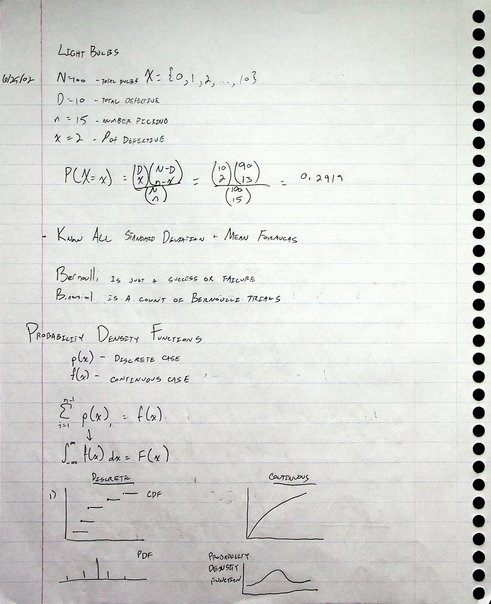 LIGHT BULBS
6/25/02
N=100 - TOTAL BULBS X = {0, 1, 2, ..., 10}
D=10 - TOTAL DEFECTIVE
n = 15 - NUMBER PICKING
x = 2 - P of DEFECTIVE
P(X=x) = (D x)(N-D n-x) / (N n) = (10 2)(90 13) / (100 15) = 0.2919
- KNOW ALL STANDARD DEVIATION + MEAN FORMULAS
Bernoulli IS JUST A SUCCESS OR FAILURE
Binomial IS A COUNT OF BERNOULLI TRIALS
PROBABILITY DENSITY FUNCTIONS
p(x) - DISCRETE CASE
f(x) - CONTINUOUS CASE
∑ n-1 i=1 p(x)i = f(x)
↓
∫ ∞ -∞ f(x) dx = F(x)
DISCRETE CONTINUOUS
1) CDF
PDF
PROBABILITY
DENSITY
FUNCTION